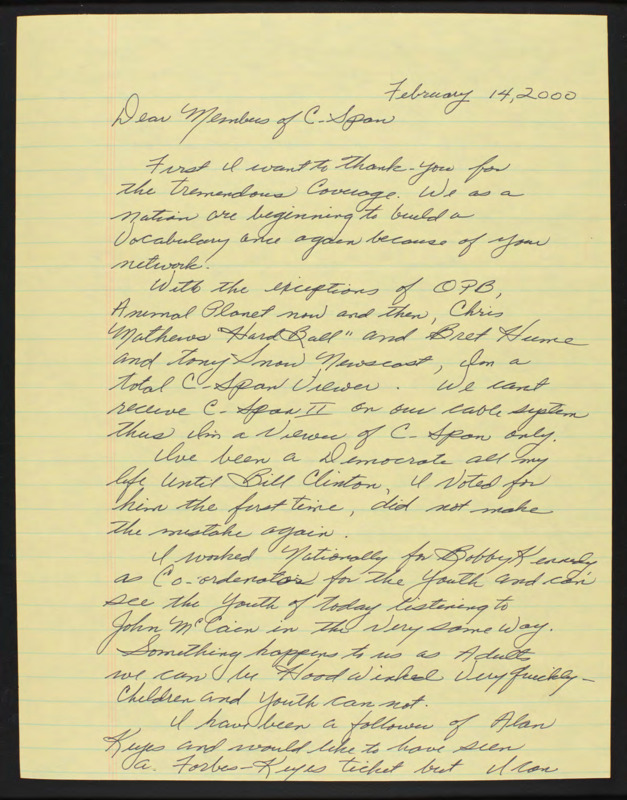 February 14, 2000
Dear Members of C-Span
First I want to thank-you for
the tremendous Coverage. We as a
nation are beginning to build a
Vocabulary once again because of your
network.
With the exceptions of OPB,
Animal Planet now and then, Chris
Mathews "Hard Ball" and Bret Hume
and tony Snow Newscast, I'm a
total C-Span Viewer. We can't
receive C-Span II on our cable system
thus I'm a Viewer of C-Span only.
I've been a Democrate all my
life until Bill Clinton, I voted for
him the first time, did not make
the mistake again.
I worked Nationally for Bobby Kennedy
as Co-ordenator for the Youth and can
see the Youth of today listening to
John McCain in the very same way.
Something happens to us as Adults
we can be Hood winked very quickly-
Children and Youth can not.
I have been a follower of Alan
Keyes and would like to have seen
a Forbes-Keyes ticket but I can